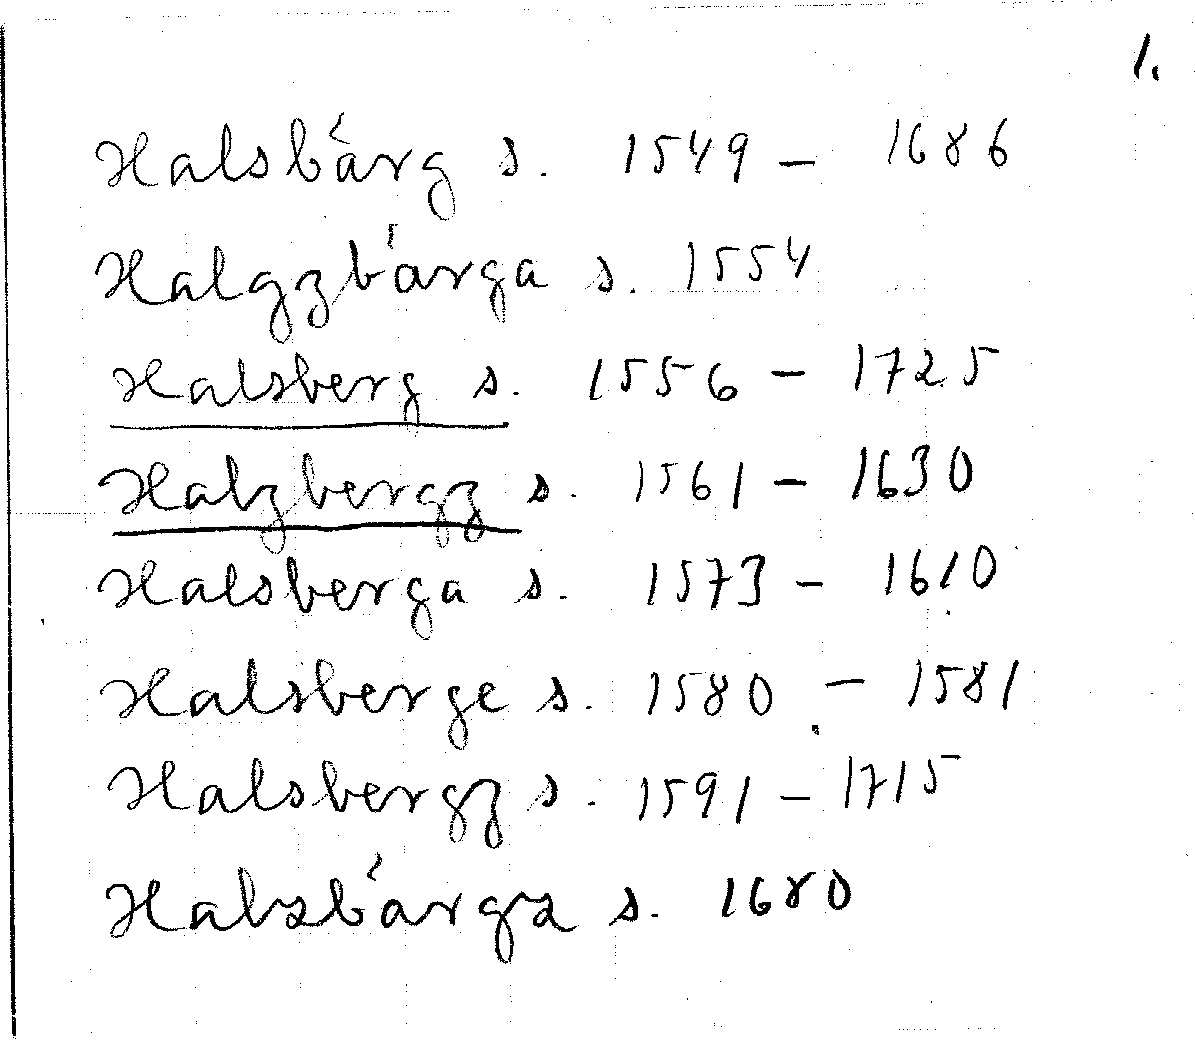 1.
Halsbärg s. 1549 – 1686
Halgzbärga s. 1554
Halsberg s. 1556 – 1725
Halzbergz s. 1561 – 1630
Halsberga s. 1573 – 1610
Halsberge s. 1580 – 1581
Halsbergz s. 1591 – 1715
Halszbärgz s. 1680